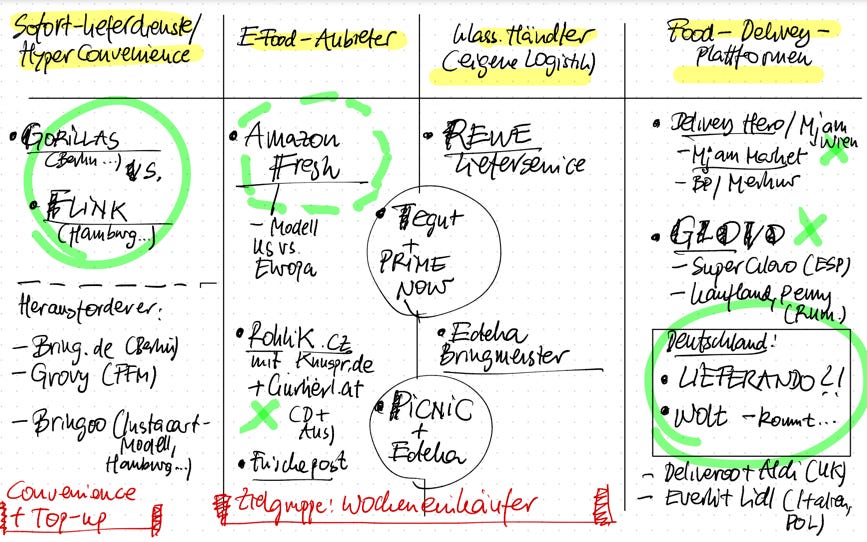 Sofort-Lieferdienste/
Hyper Convenience
• GORILLAS
(Berlin...) vs.
• FLINK
(Hamburg...)
Herausforderer:
– Bring.de (Berlin)
– Grovy (FFM)
– Bringoo (Instacart-
Modell,
Hamburg...)
Convenience
+ Top-up
E-Food-Anbieter
• Amazon
Fresh
– Modell
US vs.
Europa
• Rohlik.cz
mit Knuspr.de
+ Gurkerl.at
(D+
Aus)
• Frischepost
Klass. Händler
(eigene Logistik)
• REWE
Lieferservice
• Tegut
+
PRIME
NOW
• Edeka
Bringmeister
• PICNIC
+
Edeka
Zielgruppe: Wocheneinkäufer
Food-Delivery-
Plattformen
• Delivery Hero/Mjam
Wien
– Mjam Market
– BP/Merkur
• GLOVO
– SuperGlovo (ESP)
– Kaufland, Penny
(Rum.)
Deutschland:
• LIEFERANDO?!
• Wolt – kommt...
– Deliveroo + Aldi (UK)
– Everli + Lidl (Italien,
POL)